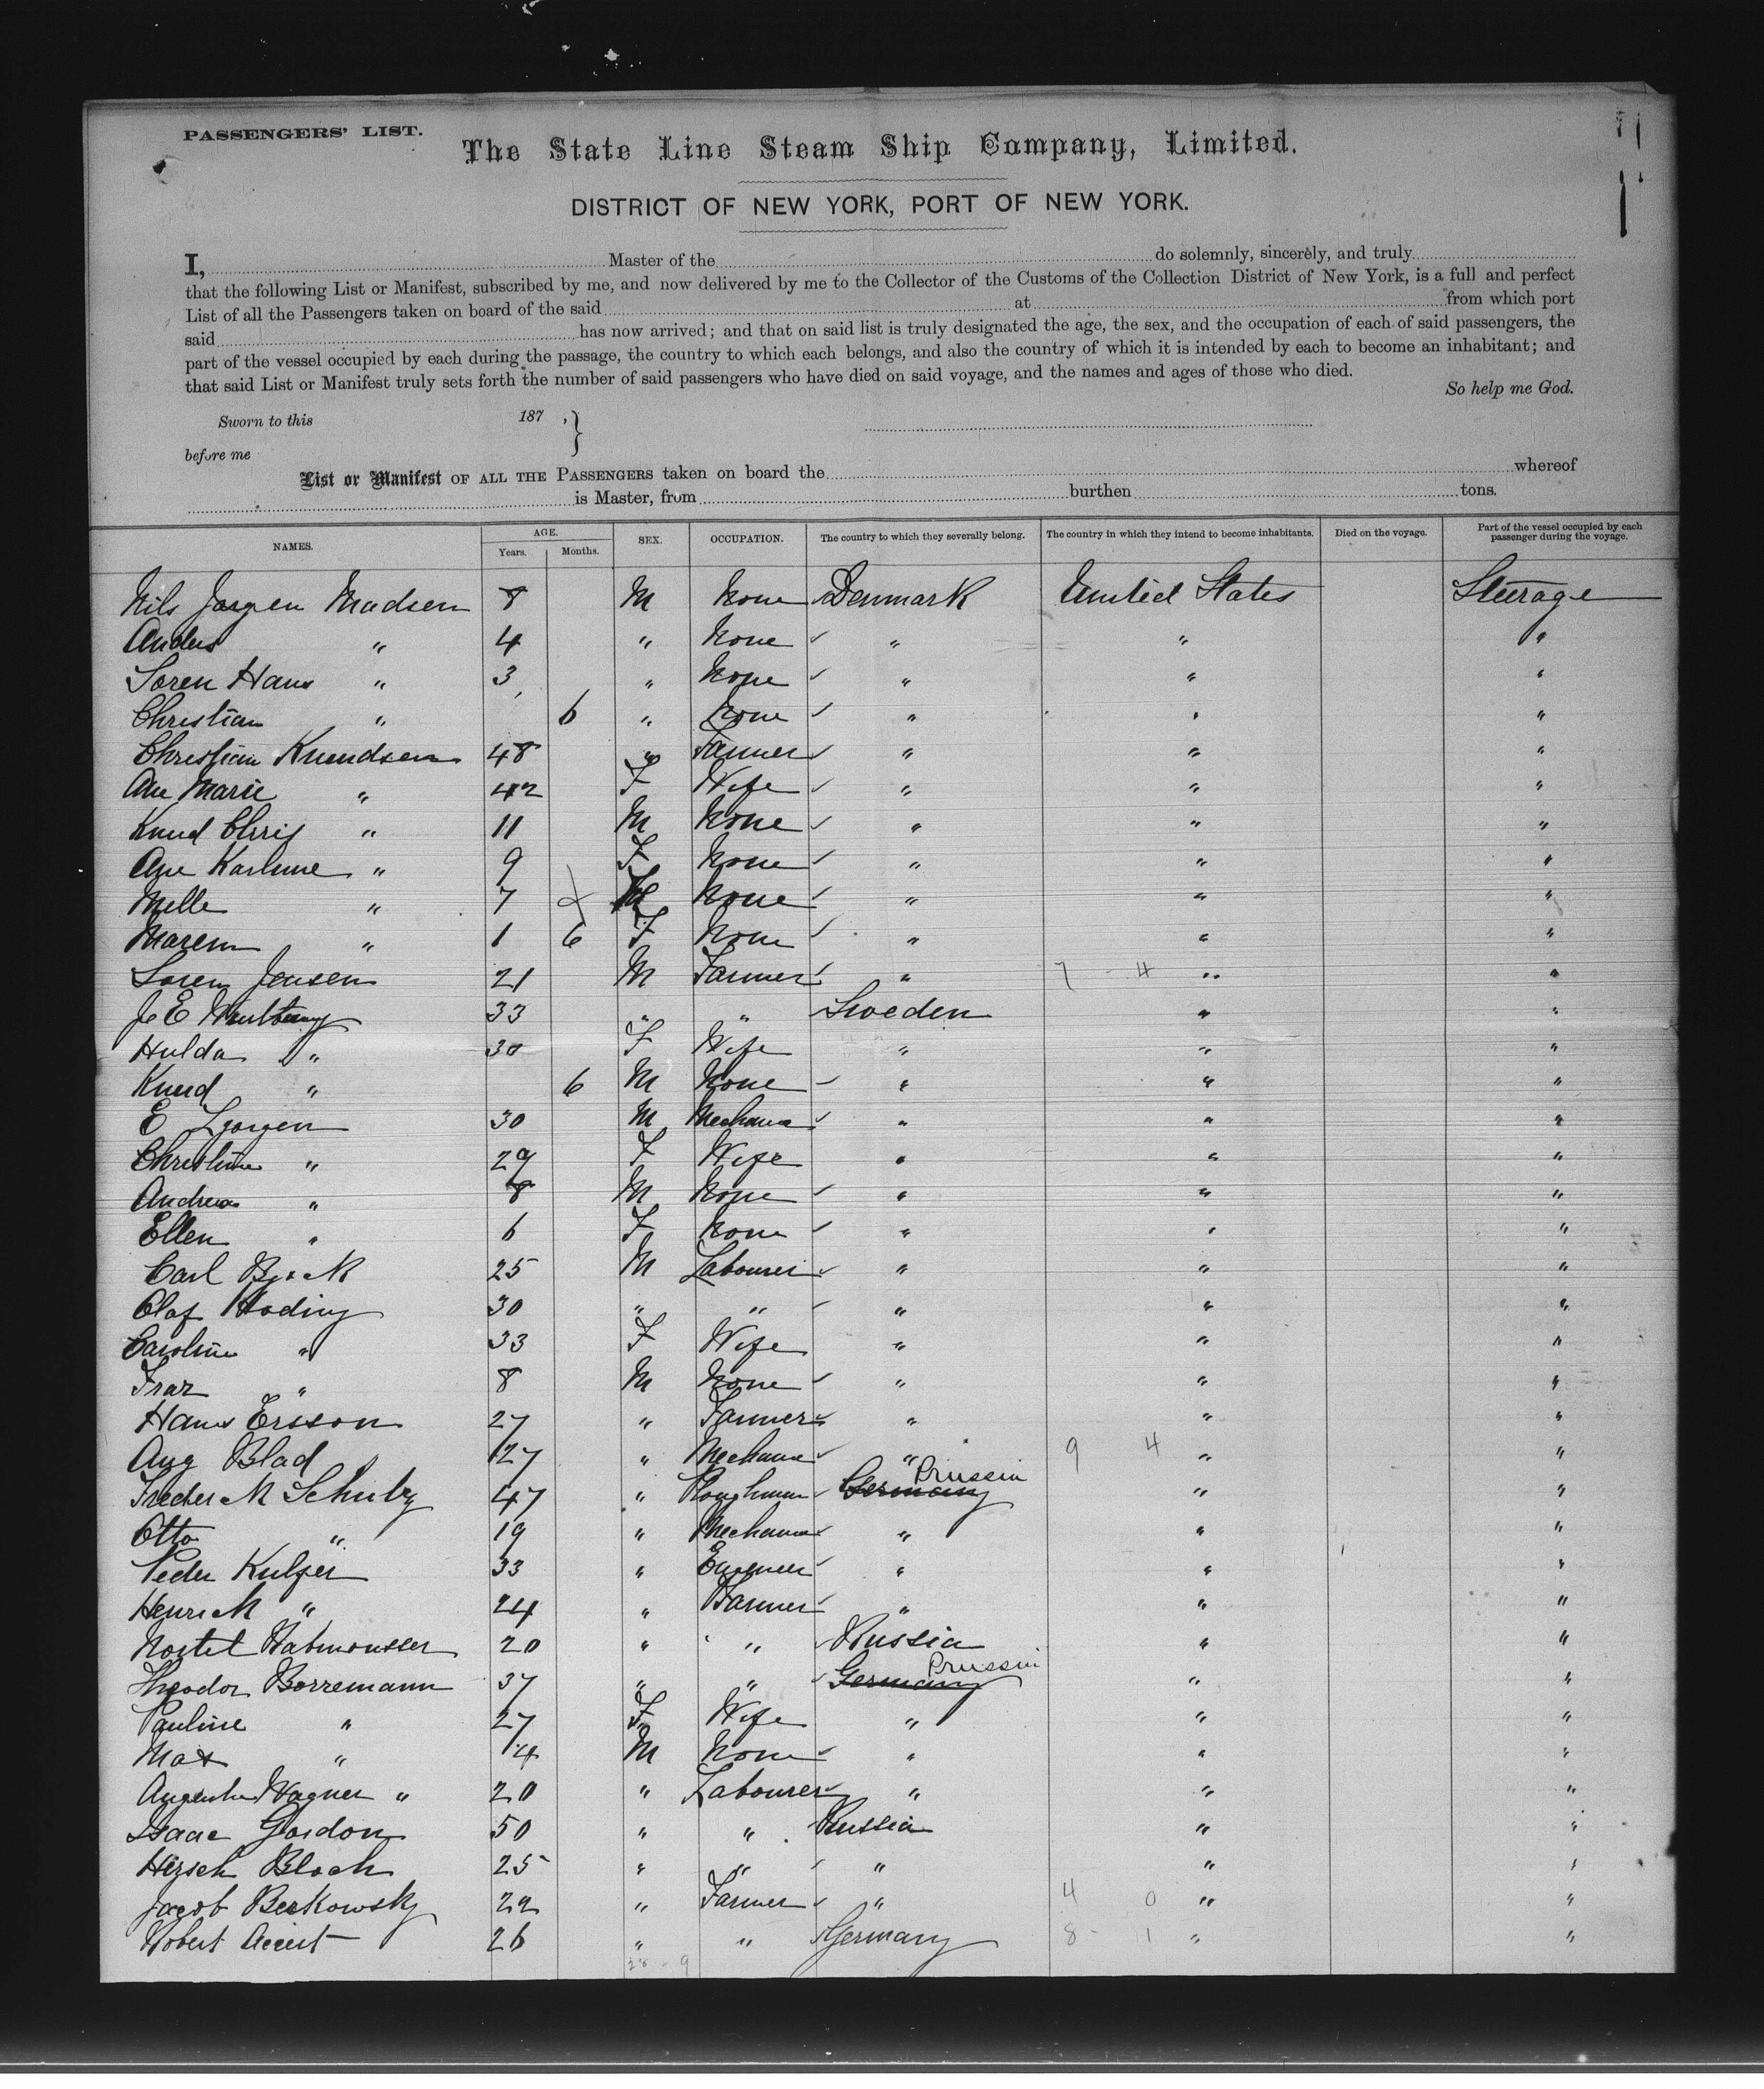 PASSENGERS' LIST.
The State Line Steam Ship Company, Limited.
DISTRICT OF NEW YORK, PORT OF NEW YORK.
I, Master of the do solemnly, sincerely, and truly
that the following List or Manifest, subscribed by me, and now delivered by me to the Collector of the Customs of the Collection District of New York, is a full and perfect
List of all the Passengers taken on board of the said at from which port
said has now arrived; and that on said list is truly designated the age, the sex, and the occupation of each of said passengers, the
part of the vessel occupied by each during the passage, the country to which each belongs, and also the country of which it is intended by each to become an inhabitant; and
that said List or Manifest truly sets forth the number of said passengers who have died on said voyage, and the names and ages of those who died.
So help me God.
Sworn to this 187 , }
before me
List or Manifest OF ALL THE PASSENGERS taken on board the whereof
is Master, from burthen tons.
NAMES. AGE. Years. Months. SEX. OCCUPATION. The country to which they severally belong. The country in which they intend to become inhabitants. Died on the voyage. Part of the vessel occupied by each passenger during the voyage.
Nils Jorgen Madsen 8 M None Denmark United States Steerage
Anders " 4 " None " " "
Soren Hans " 3 " None " " "
Christian " 6 " None " " "
Christian Knudsen 48 " Farmer " " "
Ane Marie " 42 F Wife " " "
Knud Chris " 11 M None " " "
Ane " 9 F None " " "
Melle " 7 None " " "
Maren " 1 6 F None " " "
Soren Jensen 21 M Farmer " 7 - 4 " "
33 " " Sweden " "
Hulda " 30 F Wife " " "
Knud " 6 M None " " "
E 30 M Mechanic " " "
Christine " 29 F Wife " " "
Andrew " 8 M None " " "
Ellen " 6 F None " " "
Carl 25 M Labourer " " "
Olaf 30 " " " " "
Caroline " 33 F Wife " " "
" 8 M None " " "
Hans Ersson 27 " Farmer " " "
Aug Blad 27 " Mechanic " 9 4 " "
Frederick Schulz 47 " Ploughman Germany Prussia " "
Otto " 19 " Mechanic " " "
Peder 33 " Engineer " " "
Henrick " 24 " Farmer " " "
20 " " Russia " "
Theodor Borremann 37 " " Germany Prussia " "
Pauline " 27 F Wife " " "
Max " M None " " "
Wagner " 20 " Labourer " " "
Isaac Gordon 50 " " Russia " "
Hirsch Bloch 25 " " " " "
Jacob Berkowsky 22 " Farmer " 4 0 " "
Robert 26 " " Germany 8 - 1 " "